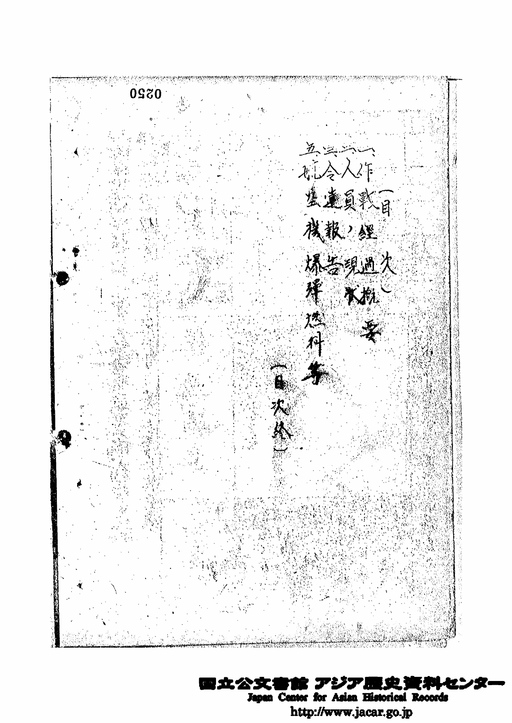 0250
(目次)
一、作戦経過概要
二、人員ノ現状
三、令達報告
五、航空機爆弾燃料等
(目次終)
国立公文書館 アジア歴史資料センター
Japan Center for Asian Historical Records
http://www.jacar.go.jp